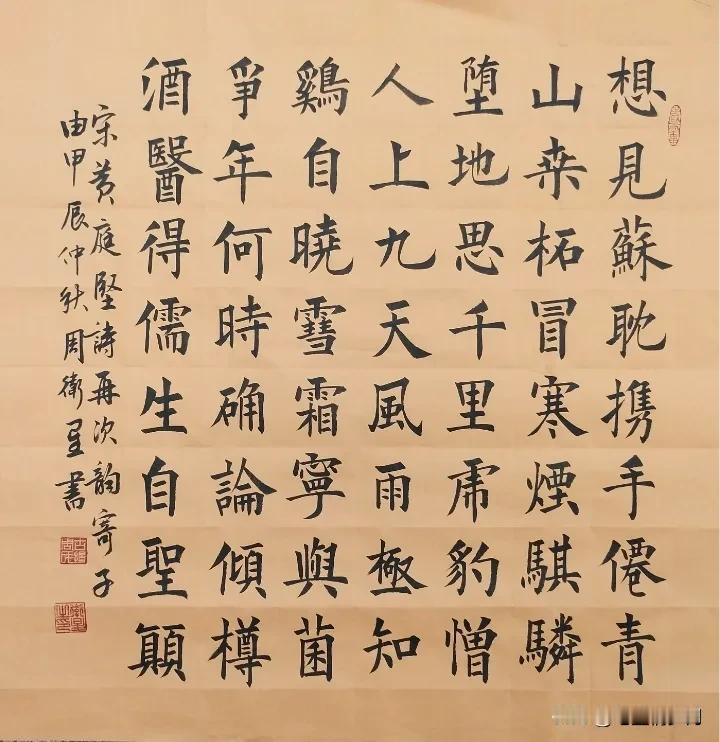 想見蘇耽携手僊青
山桒柘冒寒煙騏驎
堕地思千里虎豹憎
人上九天風雨極知
鷄自曉雪霜寧與菌
爭年何時确論傾樽
酒醫得儒生自聖顛
宋黄庭堅詩再次韵寄子
由甲辰仲秋周衛星書